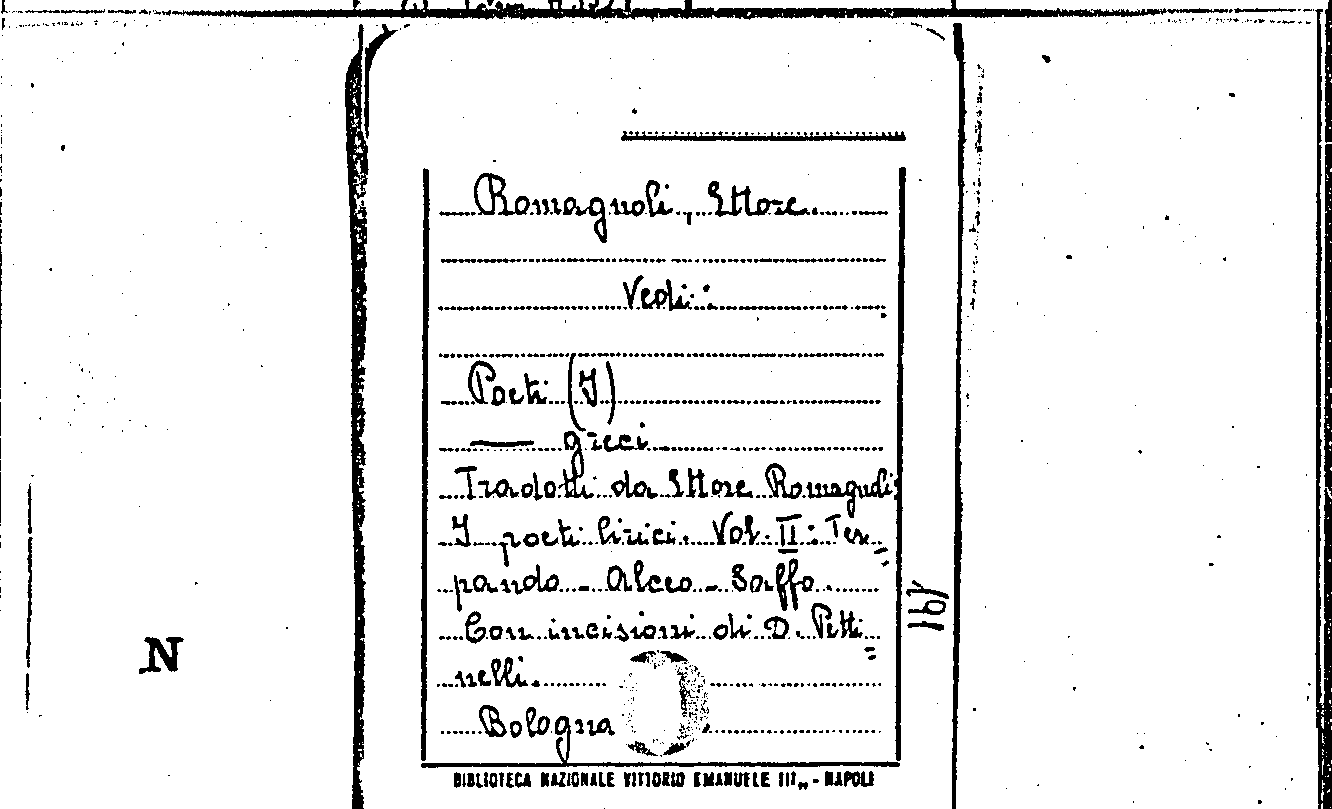 Romagnoli, Ettore.
Vedi:
Poeti (I)
— greci
Tradotti da Ettore Romagnoli:
I poeti lirici. Vol. II: Ter=
pando - Alceo - Saffo.
Con incisioni di D. Petti=
nelli.
Bologna
BIBLIOTECA NAZIONALE VITTORIO EMANUELE III„ - NAPOLI
N